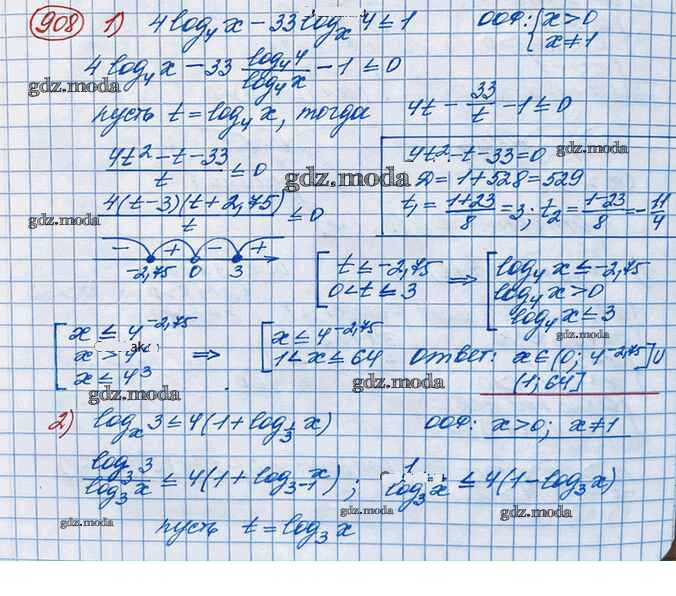 908 1) 4log₄x − 33logₓ4 ≤ 1 ООФ: { x > 0
x ≠ 1
4log₄x − 33 log₄4/log₄x − 1 ≤ 0
gdz.moda
пусть t = log₄x, тогда 4t − 33/t − 1 ≤ 0
(4t² − t − 33)/t ≤ 0
4t² − t − 33 = 0
gdz.moda
gdz.moda
D = 1 + 528 = 529
4(t−3)(t+2,75)/t ≤ 0
t₁ = (1+23)/8 = 3; t₂ = (1−23)/8 = −11/4
gdz.moda
gdz.moda
− + − +
−2,75 0 3
[ t ≤ −2,75
0 < t ≤ 3
⇒ [ log₄x ≤ −2,75
log₄x > 0
log₄x ≤ 3
gdz.moda
[ x ≤ 4^−2,75
x > 4
ak
x ≤ 4³
⇒ [ x ≤ 4^−2,75
1 < x ≤ 64
ответ: x ∈ (0; 4^−2,75] ∪
(1; 64]
gdz.moda
gdz.moda
gdz.moda
2) logₓ3 ≤ 4(1 + log_{1/3}x) ООФ: x > 0; x ≠ 1
log₃3/log₃x ≤ 4(1 + log_{3⁻¹}x); 1/log₃x ≤ 4(1 − log₃x)
gdz.moda
gdz.moda
gdz.moda
пусть t = log₃x
gdz.moda
gdz.moda